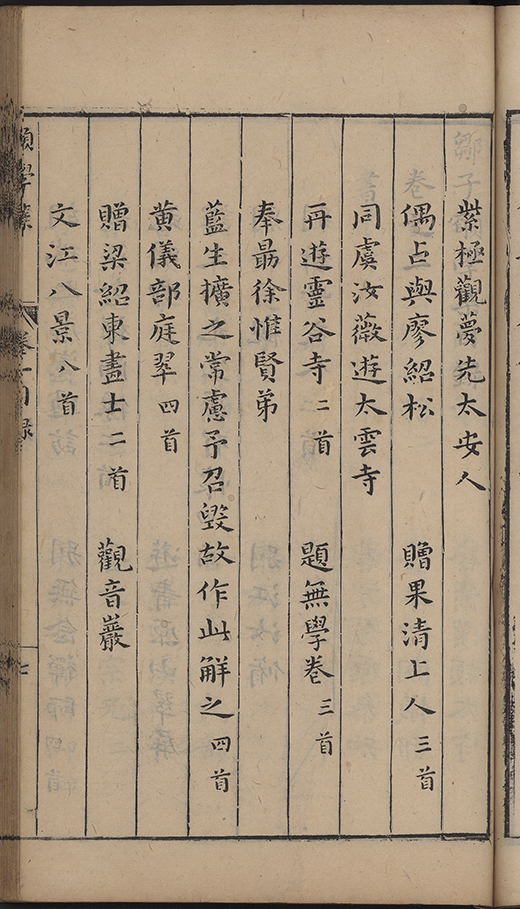 紫極觀夢先太安人
偶占與廖紹松　贈果清上人三首
同虞汝薇遊太雲寺
再遊靈谷寺二首　題無學卷三首
奉勗徐惟賢弟
藍生擴之常慮予召毀故作此解之四首
黄儀部庭翠四首
贈梁紹東畫士二首　觀音巖
文江八景八首
願學集　卷一目錄　七